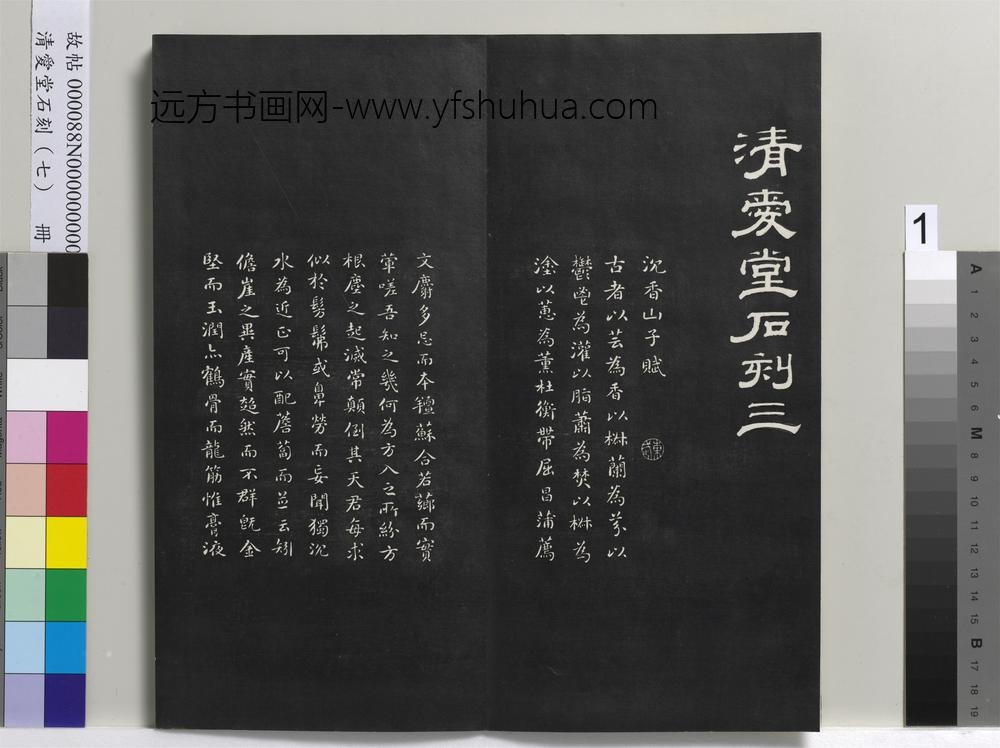 清愛堂石刻三
沉香山子賦
古者以芸為香以椒蘭為芬以
鬱鬯為灌以脂蕭為焚以椒為
塗以蕙為薰杜衡帶屈昌蒲薦
文麝多忌而本羶蘇合若薌而實
葷嗟吾知之幾何為六入之所紛方
根塵之起滅常顛倒其天君每求
似於髣髴或鼻勞而妄聞獨沉
水為近正可以配薝蔔而並云矧
儋崖之異產實超然而不群既金
堅而玉潤亦鶴骨而龍筋惟膏液
远方书画网-www.yfshuhua.com
故帖 000088N00000000
清愛堂石刻（七） 冊
1
A
1
2
3
4
5
6
M
8
9
10
11
12
13
14
15
B
17
18
19